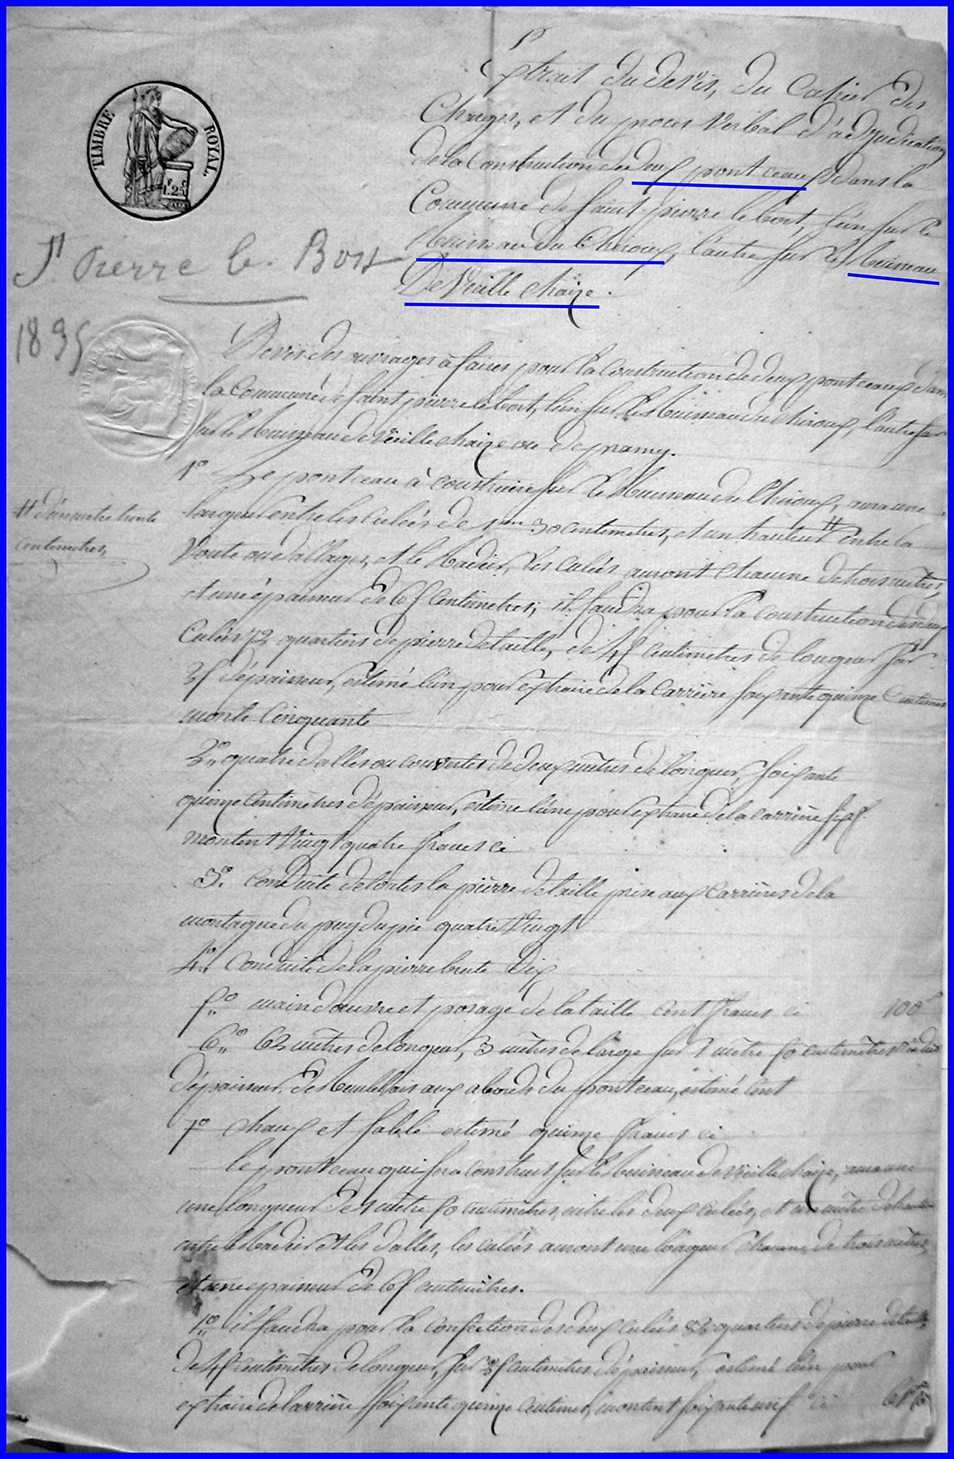 TIMBRE ROYAL
1.25
Extrait du devis, du cahier des
Charges, et du procès verbal d'adjudication
de la Construction de deux pont ceaux dans la
Commune de Saint-pierre le bost, l'un sur le
Ruisseau du Chiroux, l'autre sur le Ruisseau
De Vieille chaize.
St Pierre le. Bost
1835
Devis des ouvrages à faires pour la Construction de deux pont ceaux dans
la Commune de Saint pierre le bost, l'un sur le Ruisseau du Chiroux, l'autre sur
sur le Ruisseau de Vieille chaize ou de
1° Le pont ceau à construire sur le Ruisseau du Chiroux, aura une
longueur entre les culées de 1m 30 centimetres, et un hauteur # entre la
# d'un metre trente
centimetres,
Voute ou dallages, et le Radier, Les culées auront chacune de trois mètres,
et une épaisseur de 65 Centimetres; il faudra pour la construction des deux
Culées 72 quartiers de pierre de taille, de 45 Centimetres de longueur sur
35 d'épaisseur, estimé l'un pour extraire de la Carrière soixante quinze Centimes
monte Cinquante
2° quatre dalles ou couvertes de deux mètres de longueur, soixante
quinze centimètres d'épaisseur, estimé l'une pour extraire de la carrière six f
montent Vingt quatre francs ci
3° Conduite de toutes la pierre de taille prise aux carrières de la
montagne du puy du pié quatre Vingt
4° Conduite de la pierre brute Dix
5° main d'œuvre et posage de la taille cent francs ci 100f
6° 62 mètres de longueur, 3 mètres de large sur 1 mètre 50 centimètres
d'épaisseur. De Remblais aux abords du pont ceau, estimé cent
7° chaux et sable estimé quinze francs ci
le pont ceau qui sera construit sur le Ruisseau de Vieille chaize, aura une
une longueur de 1 mètre 50 centimètres, entre les deux culées, et un mètre de hauteur
entre le Radier et les dalles, les culées auront une longueur chacune de trois mètres,
et une epaisseur de 65 centimètres.
1° il faudra pour la confection des deux culées 82 quartiers de pierre de taille,
de 45 centimètres de longueur, sur 35 centimetres d'épaisseur, estimé l'un pour
extraire de la carrière soixante quinze centimes, montent soixante un f ci